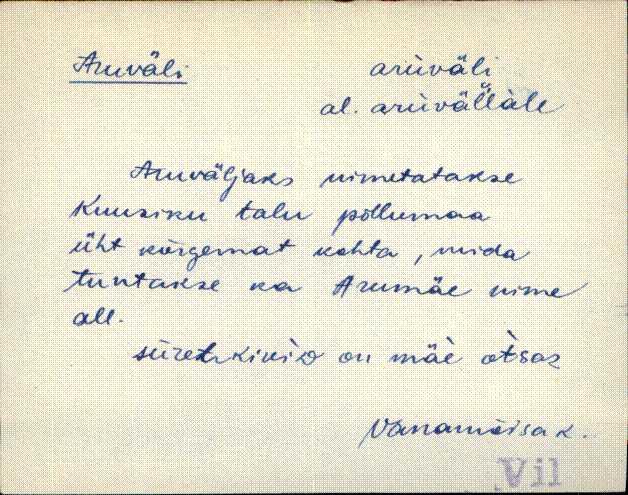 Aruväli
arùväli
al. arùvällàle
Aruväljaks nimetatakse
Kuusiku talu põllumaa
üht kõrgemat kohta, mida
tuntakse ka Arumäe nime
all.
sùret kiviD on mäè òtsas
Vanamõisa k.
Vil